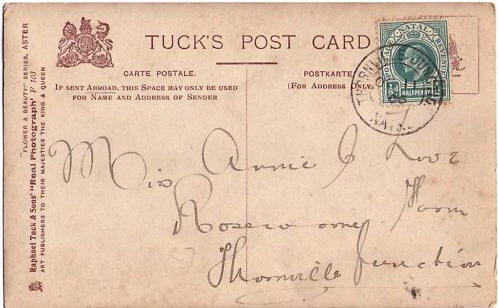 TUCK'S POST CARD
CARTE POSTALE.
POSTKARTE
IF SENT ABROAD, THIS SPACE MAY ONLY BE USED
FOR NAME AND ADDRESS OF SENDER
(FOR ADDRESS ONLY.
NATAL
HALFPENNY
NATAL
"FLOWER & BEAUTY" SERIES, ASTER
Raphael Tuck & Sons' "Real Photograph" F 103
ART PUBLISHERS TO THEIR MAJESTIES THE KING & QUEEN
Miss Annie J Love
Farm
Thornville Junction